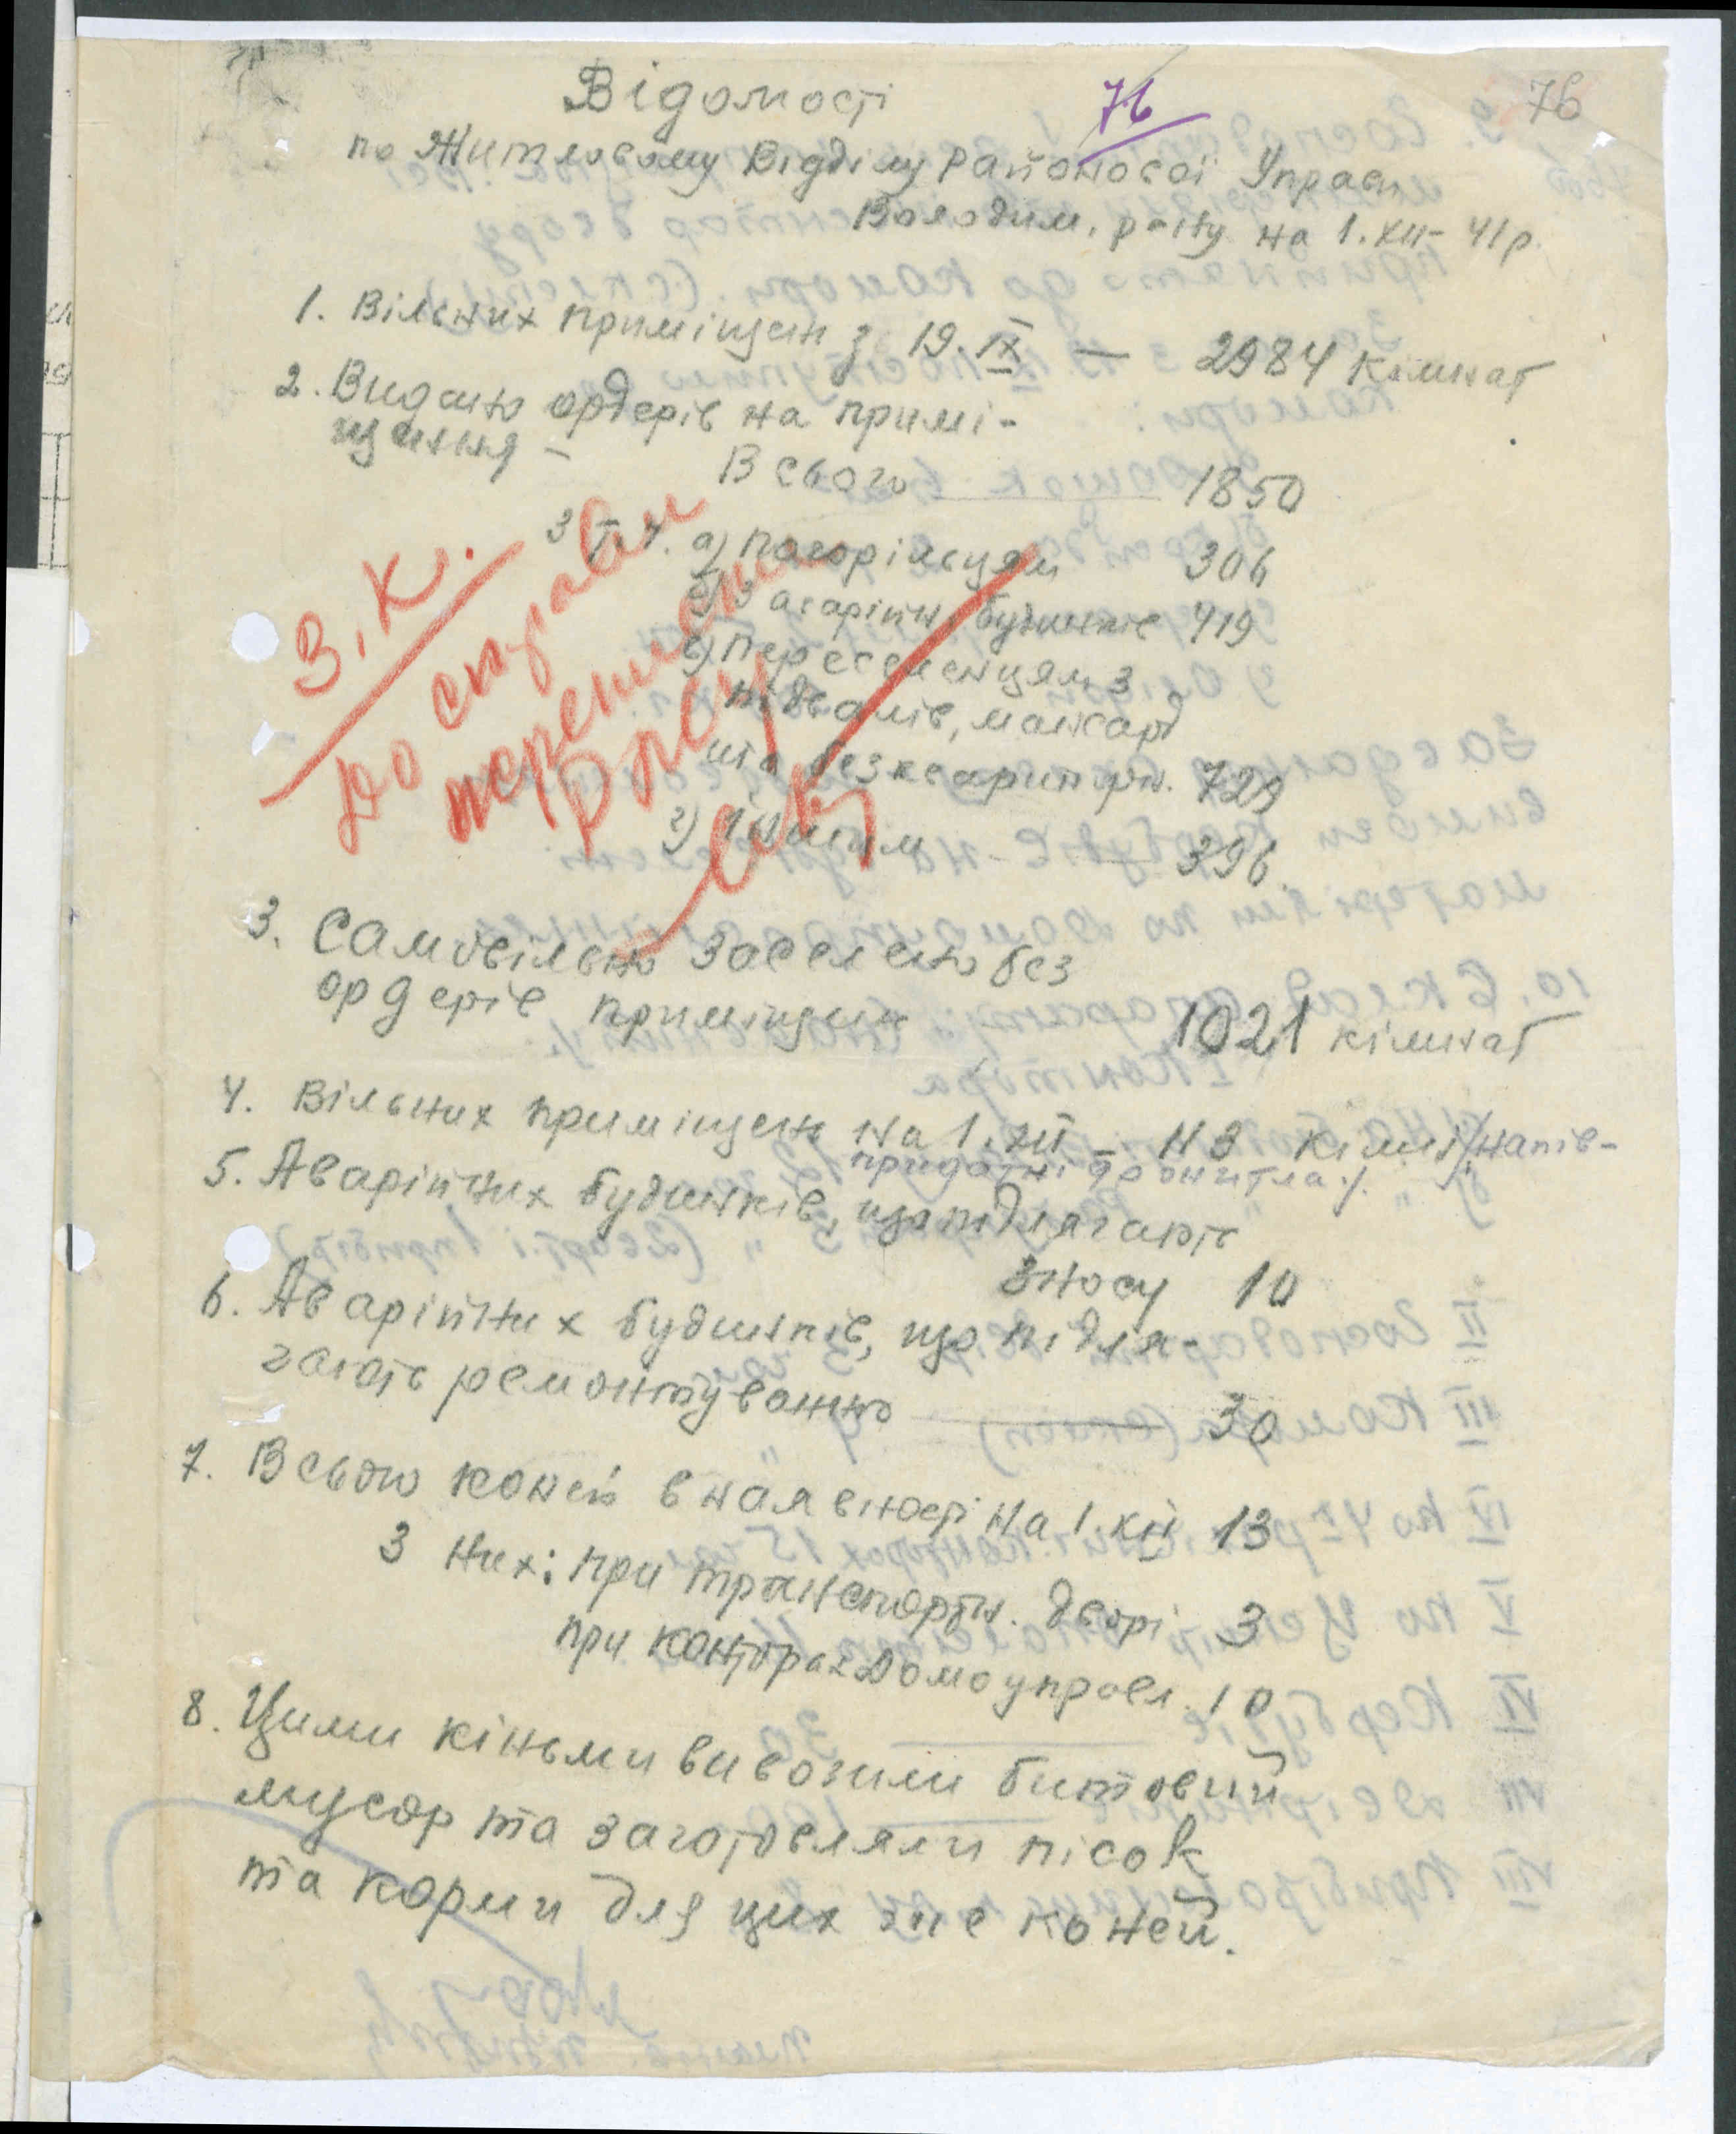 76
76
Відомості
по Житловому Відділу Районової Управи
Володим. р-ну на 1.XII- 41р.
1. Вільних приміщен з 19.IX — 2984 кімнат
2. Видано ордерів на примі-
щення -
Всього 1850
З т.ч. а) погорільцям 306
б) З аварійн. будинків 419
в) Переселенцям з
підвалів, мансард
та безквартирн. 729
г) Іншим 396
З.К.
До справи
3. Самовільно заселено без
ордерів приміщень 1021 кімнат
4. Вільних приміщень на 1.XII - 113 кімн /напів-
придатні до житла/.
5. Аварійних будинків, що підлягають
зносу 10
6. Аварійних будинків, що підля-
гають ремонтуванню 30
7. Всього коней в наявності на 1.XII 13
З них: при транспортн. дворі 3
при конторах Домоуправл. 10
8. Цими кіньми вивозили битовий
мусор та заготовляли пісок
та корми для цих же коней.